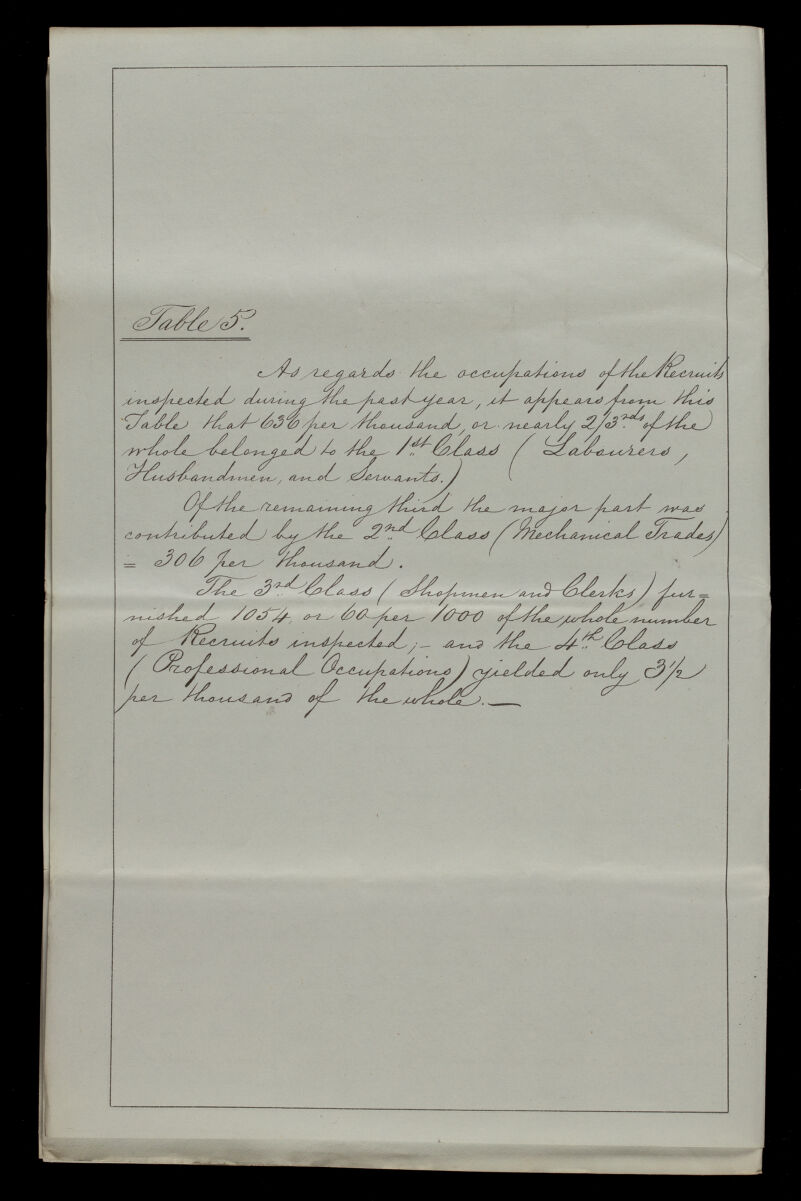 Table 5.
As regards the occupations of the Recruits
inspected during the past year, it appears from this
Table that 636 per thousand, or nearly 2/3rds of the
whole belonged to the 1st Class (Labourers,
Husbandmen, and Servants.)
Of the remaining third the major part was
contributed by the 2nd Class (Mechanical Trades)
= 306 per thousand.
The 3rd Class (Shopmen and Clerks) fur=
nished 1054, or 60 per 1000 of the whole number
of Recruits inspected;- and the 4th Class
(Professional Occupations) yielded only 3½
per thousand of the whole.—